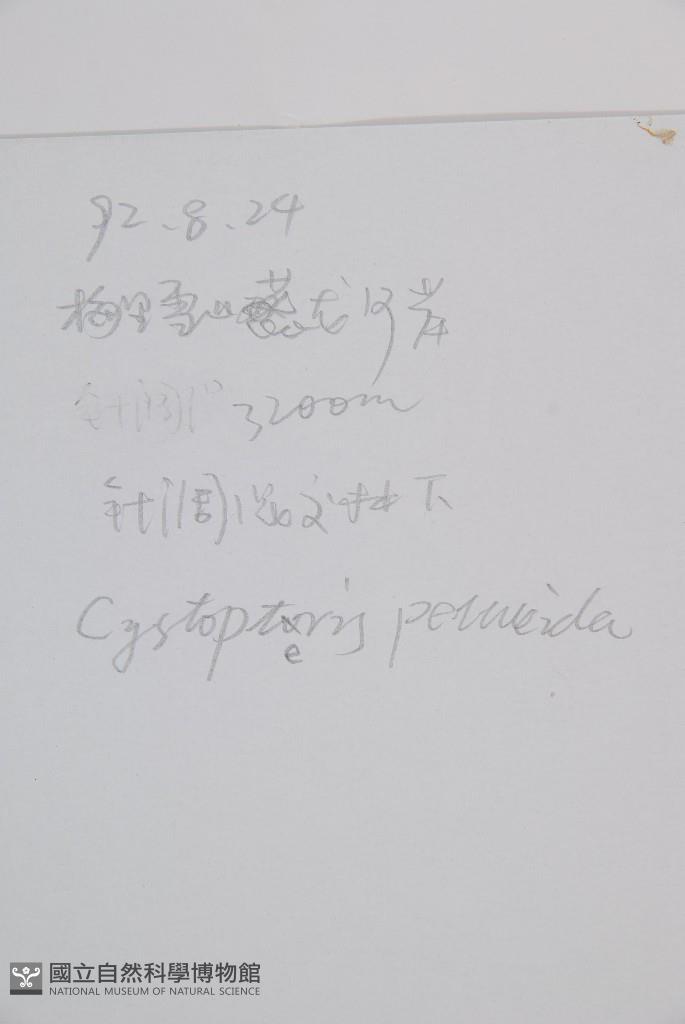 92.8.24
梅里雪山 龙 河岸
针阔 3200m
针阔混交林下
Cystopteris pellucida
國立自然科學博物館
NATIONAL MUSEUM OF NATURAL SCIENCE